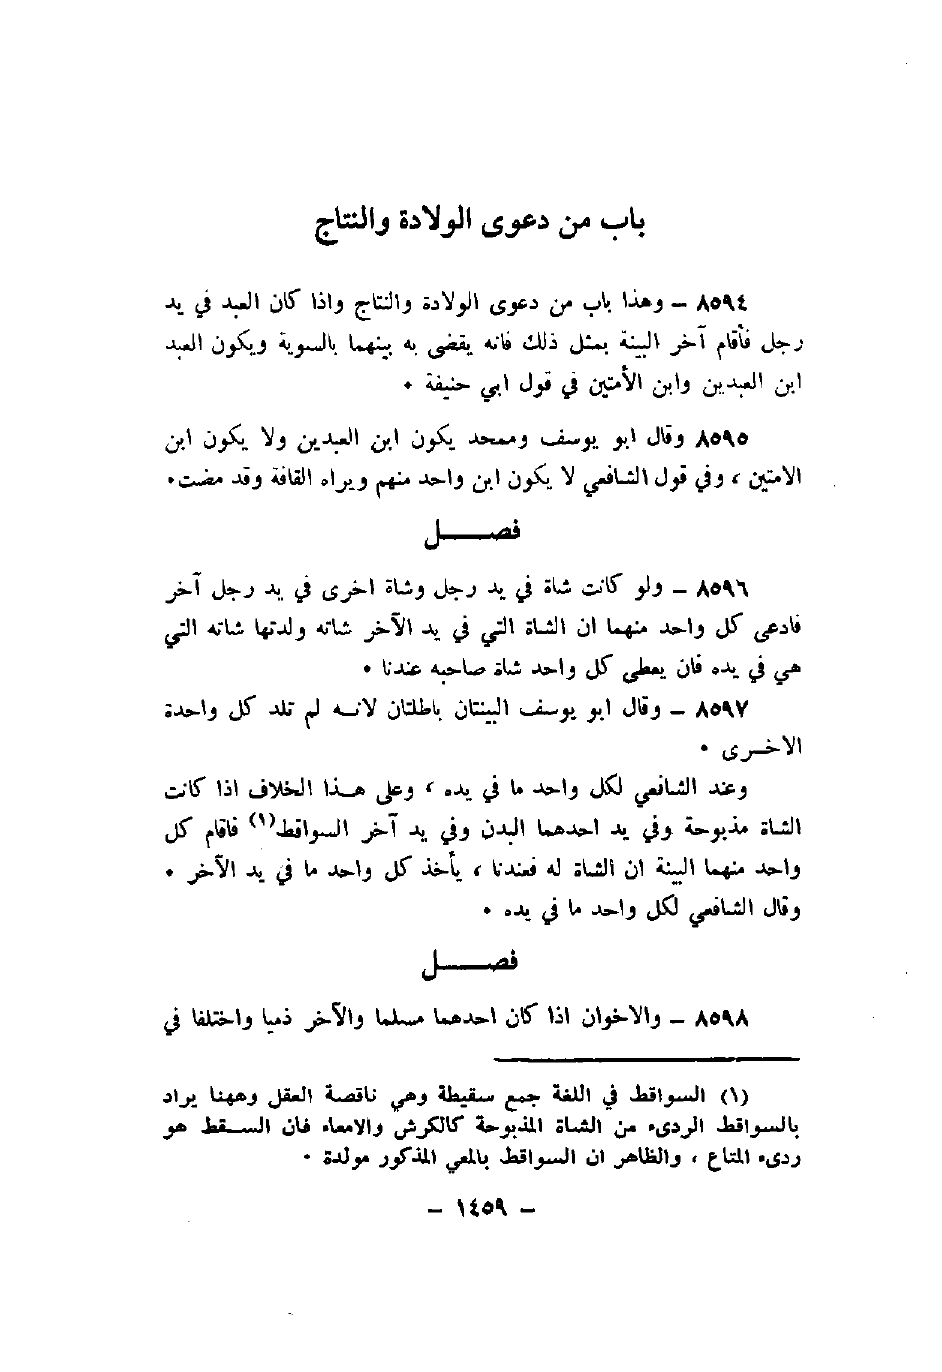 باب من دعوى الولادة والنتاج
٨٥٩٤ – وهذا باب من دعوى الولادة والنتاج واذا كان العبد في يد
رجل فأقام آخر البينة بمثل ذلك فانه يقضى به بينهما بالسوية ويكون العبد
ابن العبدين وابن الأمتين في قول ابي حنيفة ٠
٨٥٩٥ وقال ابو يوسف وممحد يكون ابن العبدين ولا يكون ابن
الامتين ، وفي قول الشافعي لا يكون ابن واحد منهم ويراه القافة وقد مضت٠
فصـــــل
٨٥٩٦ – ولو كانت شاة في يد رجل وشاة اخرى في يد رجل آخر
فادعى كل واحد منهما ان الشاة التي في يد الآخر شاته ولدتها شاته التي
هي في يده فان يعطى كل واحد شاة صاحبه عندنا ٠
٨٥٩٧ – وقال ابو يوسف البينتان باطلتان لانـه لم تلد كل واحدة
الاخـرى ٠
وعند الشافعي لكل واحد ما في يده ، وعلى هـذا الخلاف اذا كانت
الشاة مذبوحة وفي يد احدهما البدن وفي يد آخر السواقط(١) فاقام كل
واحد منهما البينة ان الشاة له فعندنا ، يأخذ كل واحد ما في يد الآخر ٠
وقال الشافعي لكل واحد ما في يده ٠
فصـــــل
٨٥٩٨ – والاخوان اذا كان احدهما مسلما والآخر ذميا واختلفا في
(١) السواقط في اللغة جمع سقيطة وهي ناقصة العقل وههنا يراد
بالسواقط الردىء من الشاة المذبوحة كالكرش والامعاء فان السـقط هو
ردىء المتاع ، والظاهر ان السواقط بالمعي المذكور مولدة ٠
– ١٤٥٩ –